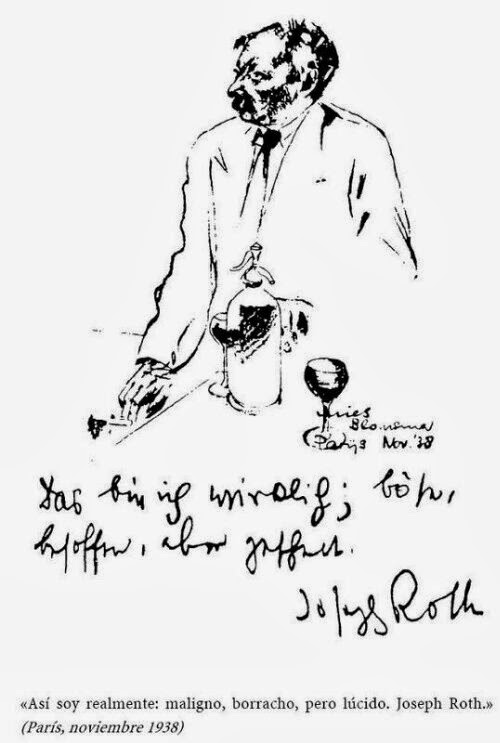 Mies
Blomema
Parijs Nov. '38
Das bin ich wirklich; böse,
besoffen, aber gescheit.
Joseph Roth
«Así soy realmente: maligno, borracho, pero lúcido. Joseph Roth.»
(París, noviembre 1938)